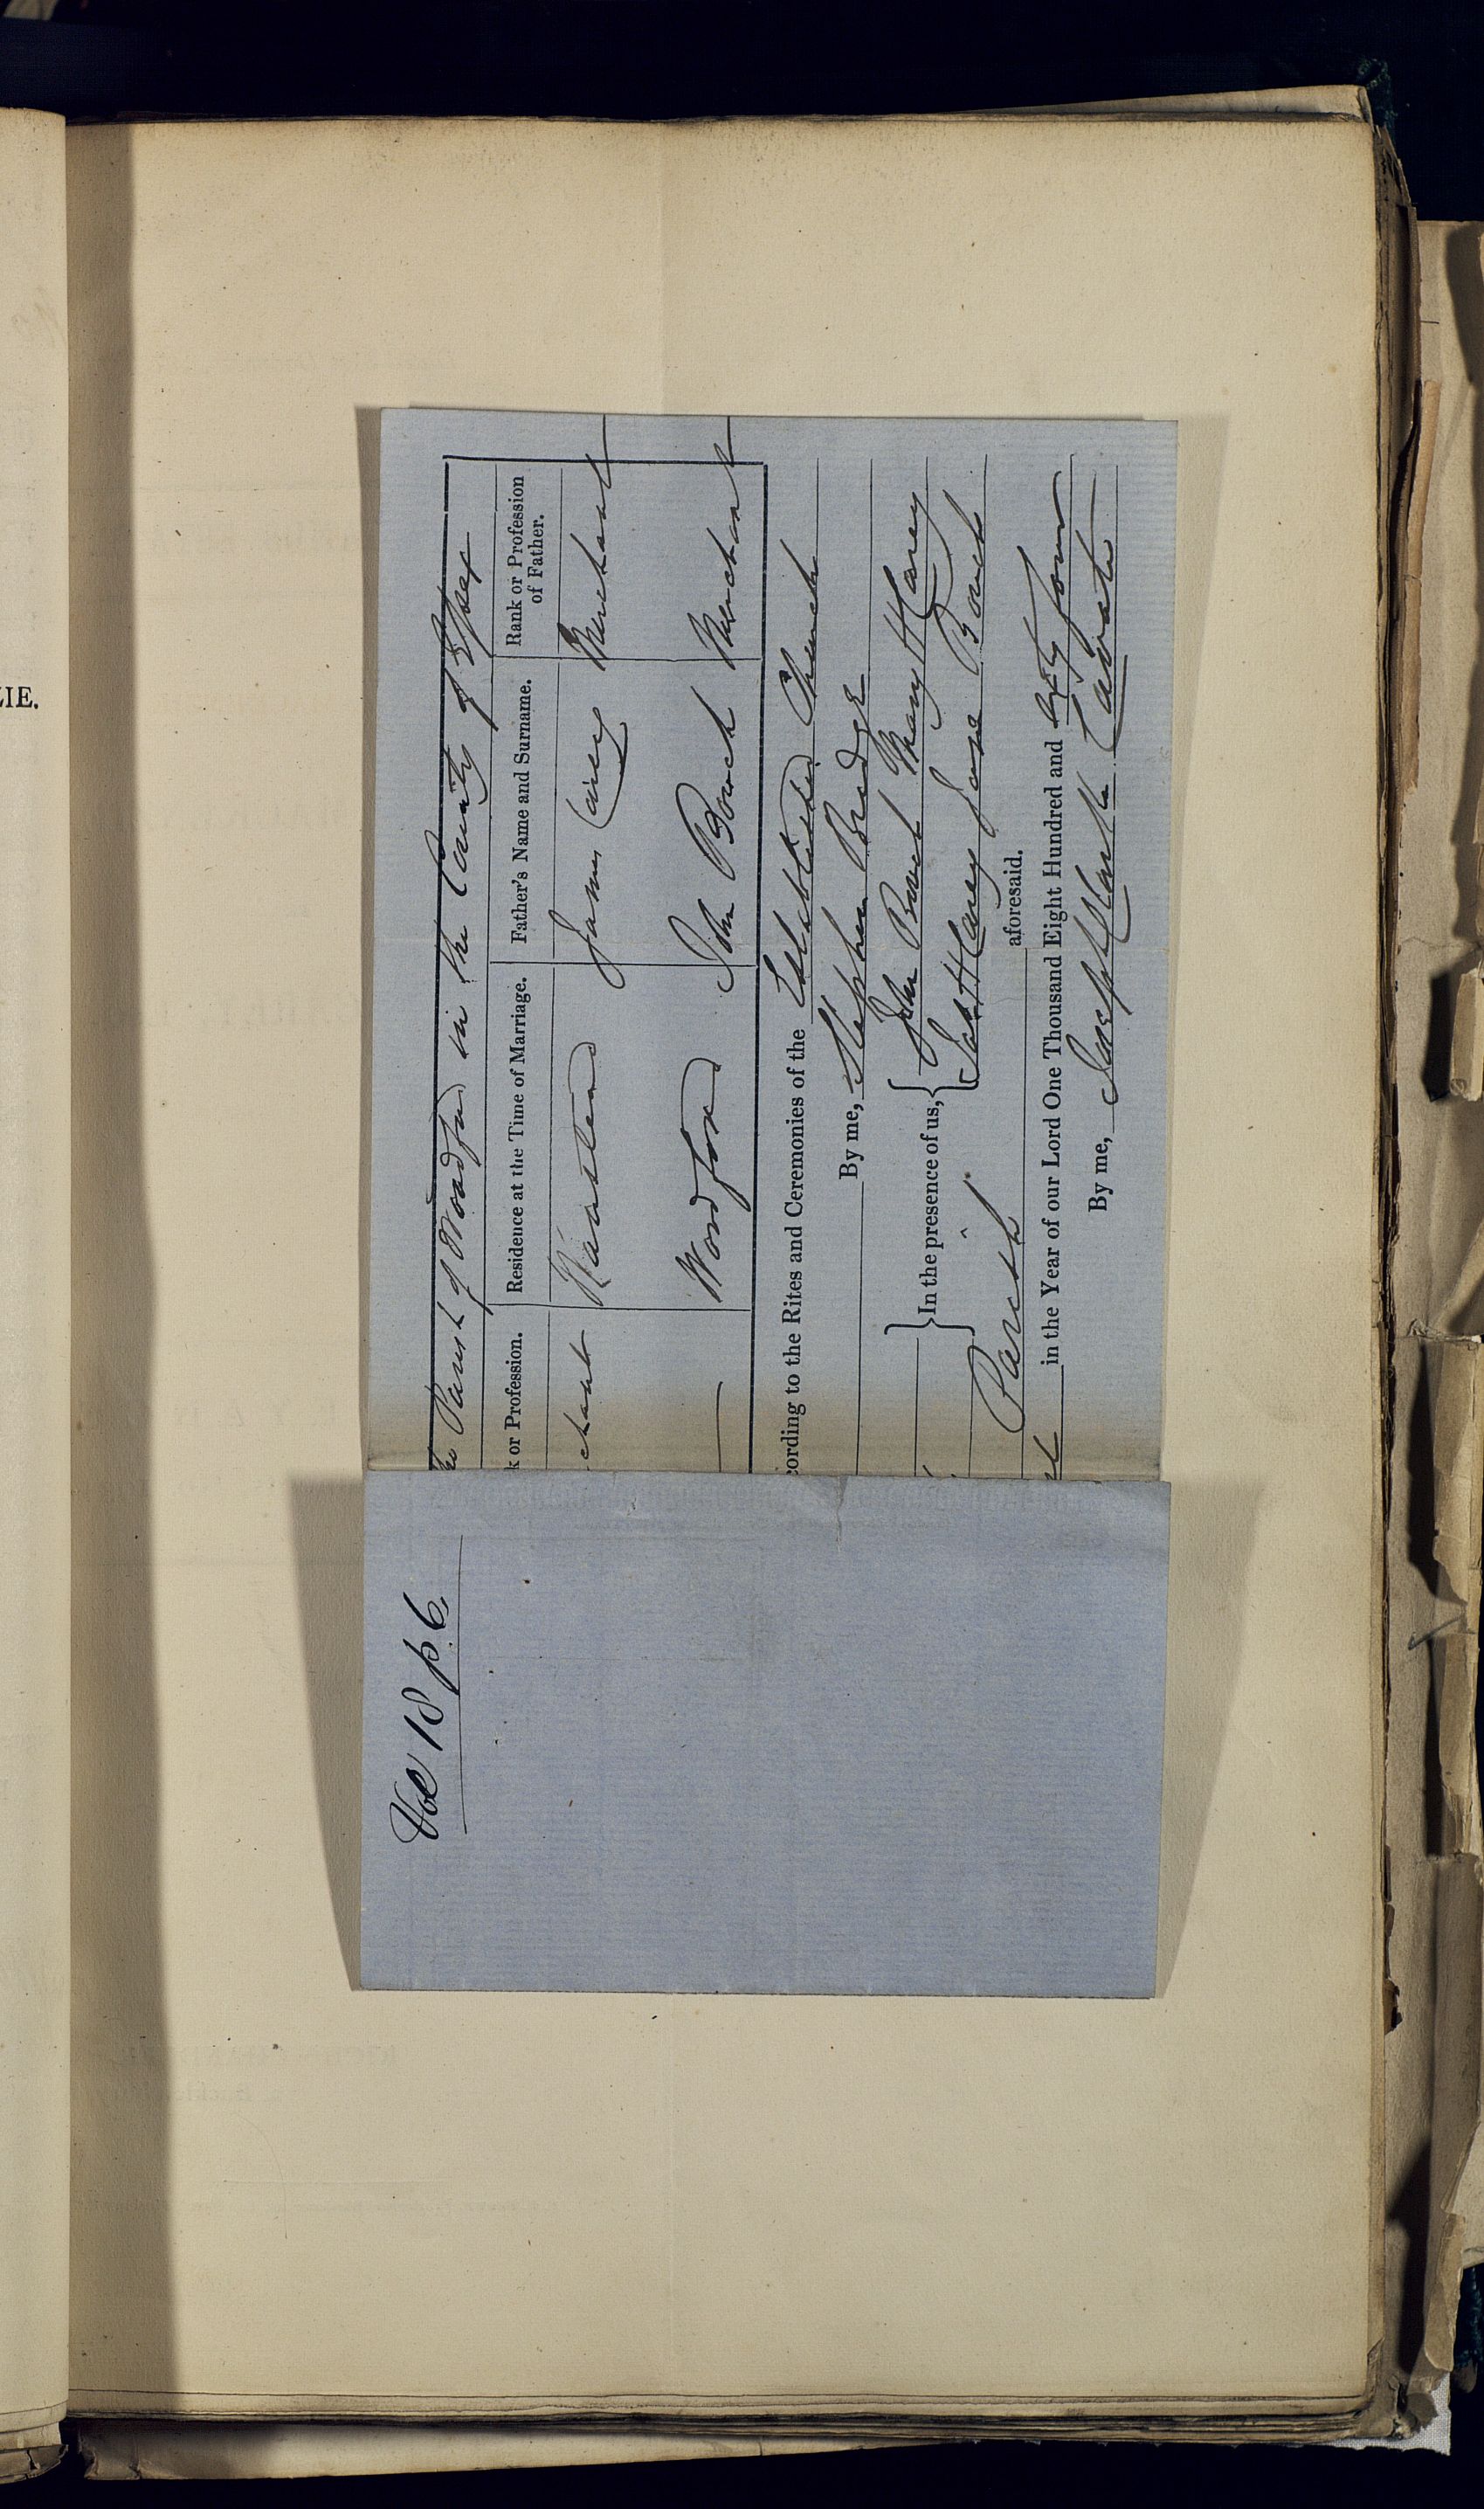 ZIE.
Vol 18 p. 6.
Parish of Woodford in the County of Essex
k or Profession. Residence at the Time of Marriage. Father's Name and Surname. Rank or Profession of Father.
chant Wanstead James Carey Merchant
Woodford John Bowch Merchant
cording to the Rites and Ceremonies of the Established Church
By me, Stephen Bridge
In the presence of us, John Mary H Carey
H Carey Jane
Parish aforesaid.
in the Year of our Lord One Thousand Eight Hundred and four
By me, Joseph Clarke Curate